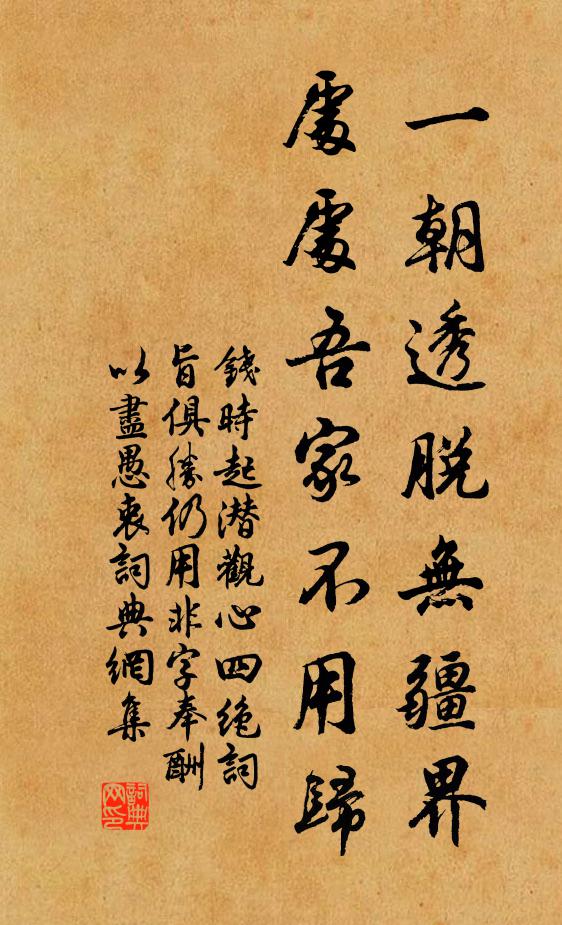 一朝透脫無疆界
處處吾家不用歸
錢時起潜觀心四絶詞
旨俱勝仍用非字奉酬
以盡愚衷詞典網集
詞典
网印